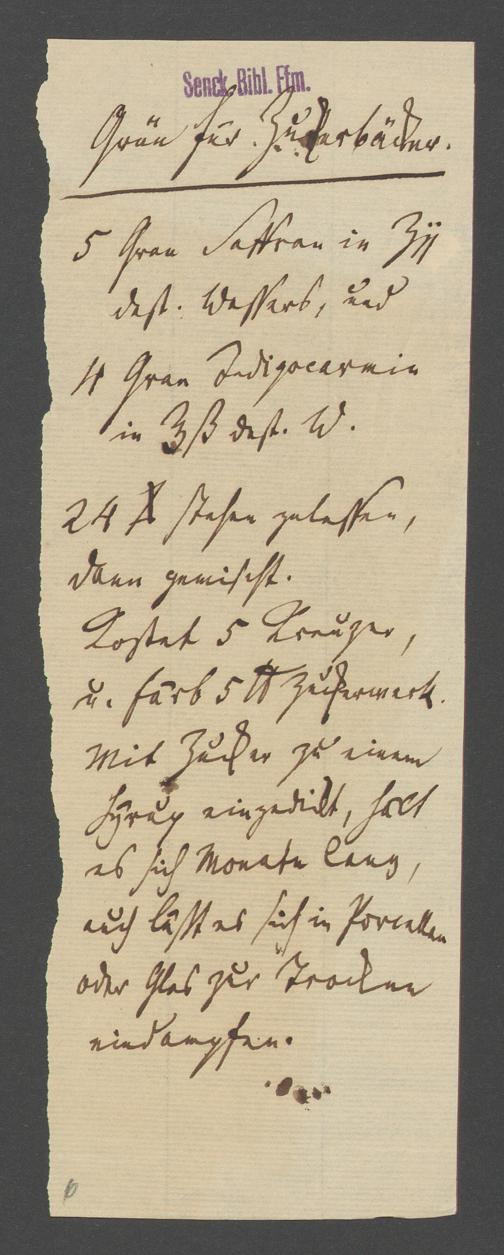 Senck. Bibl. Ffm.
Grün für Zuckerbäcker.
5 Gran Saffran in ʒij
dest. Wassers, und
4 Gran Indigocarmin
in ʒß dest. W.
24 stehen gelassen,
dann gemischt.
Kostet 5 Kreuzer,
u. färb 5 ℔ Zuckerwerk.
Mit Zucker zu einem
Syrup eingedickt, hält
es sich Monate lang,
auch läßt es sich in Porcellan
oder Glas zur Trockne
eindampfen.